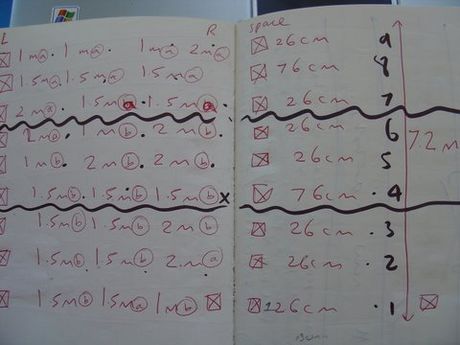 L R
1mⓐ. 1mⓐ 1mⓐ 2mⓐ
1.5mⓐ. 1.5mⓐ 1.5mⓐ
2mⓐ. 1.5mⓑ. 1.5mⓐ.
2mⓑ. 1mⓑ. 2mⓑ.
1mⓑ. 2mⓑ. 2mⓑ.
1.5mⓑ. 1.5mⓑ 1.5mⓑ x
1.5mⓑ. 1.5mⓑ 2mⓑ
1.5mⓑ. 1.5mⓑ 2.mⓐ
1.5mⓑ 1.5mⓐ 1mⓑ
space
26cm 9
76cm 8
26cm 7
26cm 6
7.2m
26cm 5
76cm .4
26cm .3
26cm .2
126cm .1